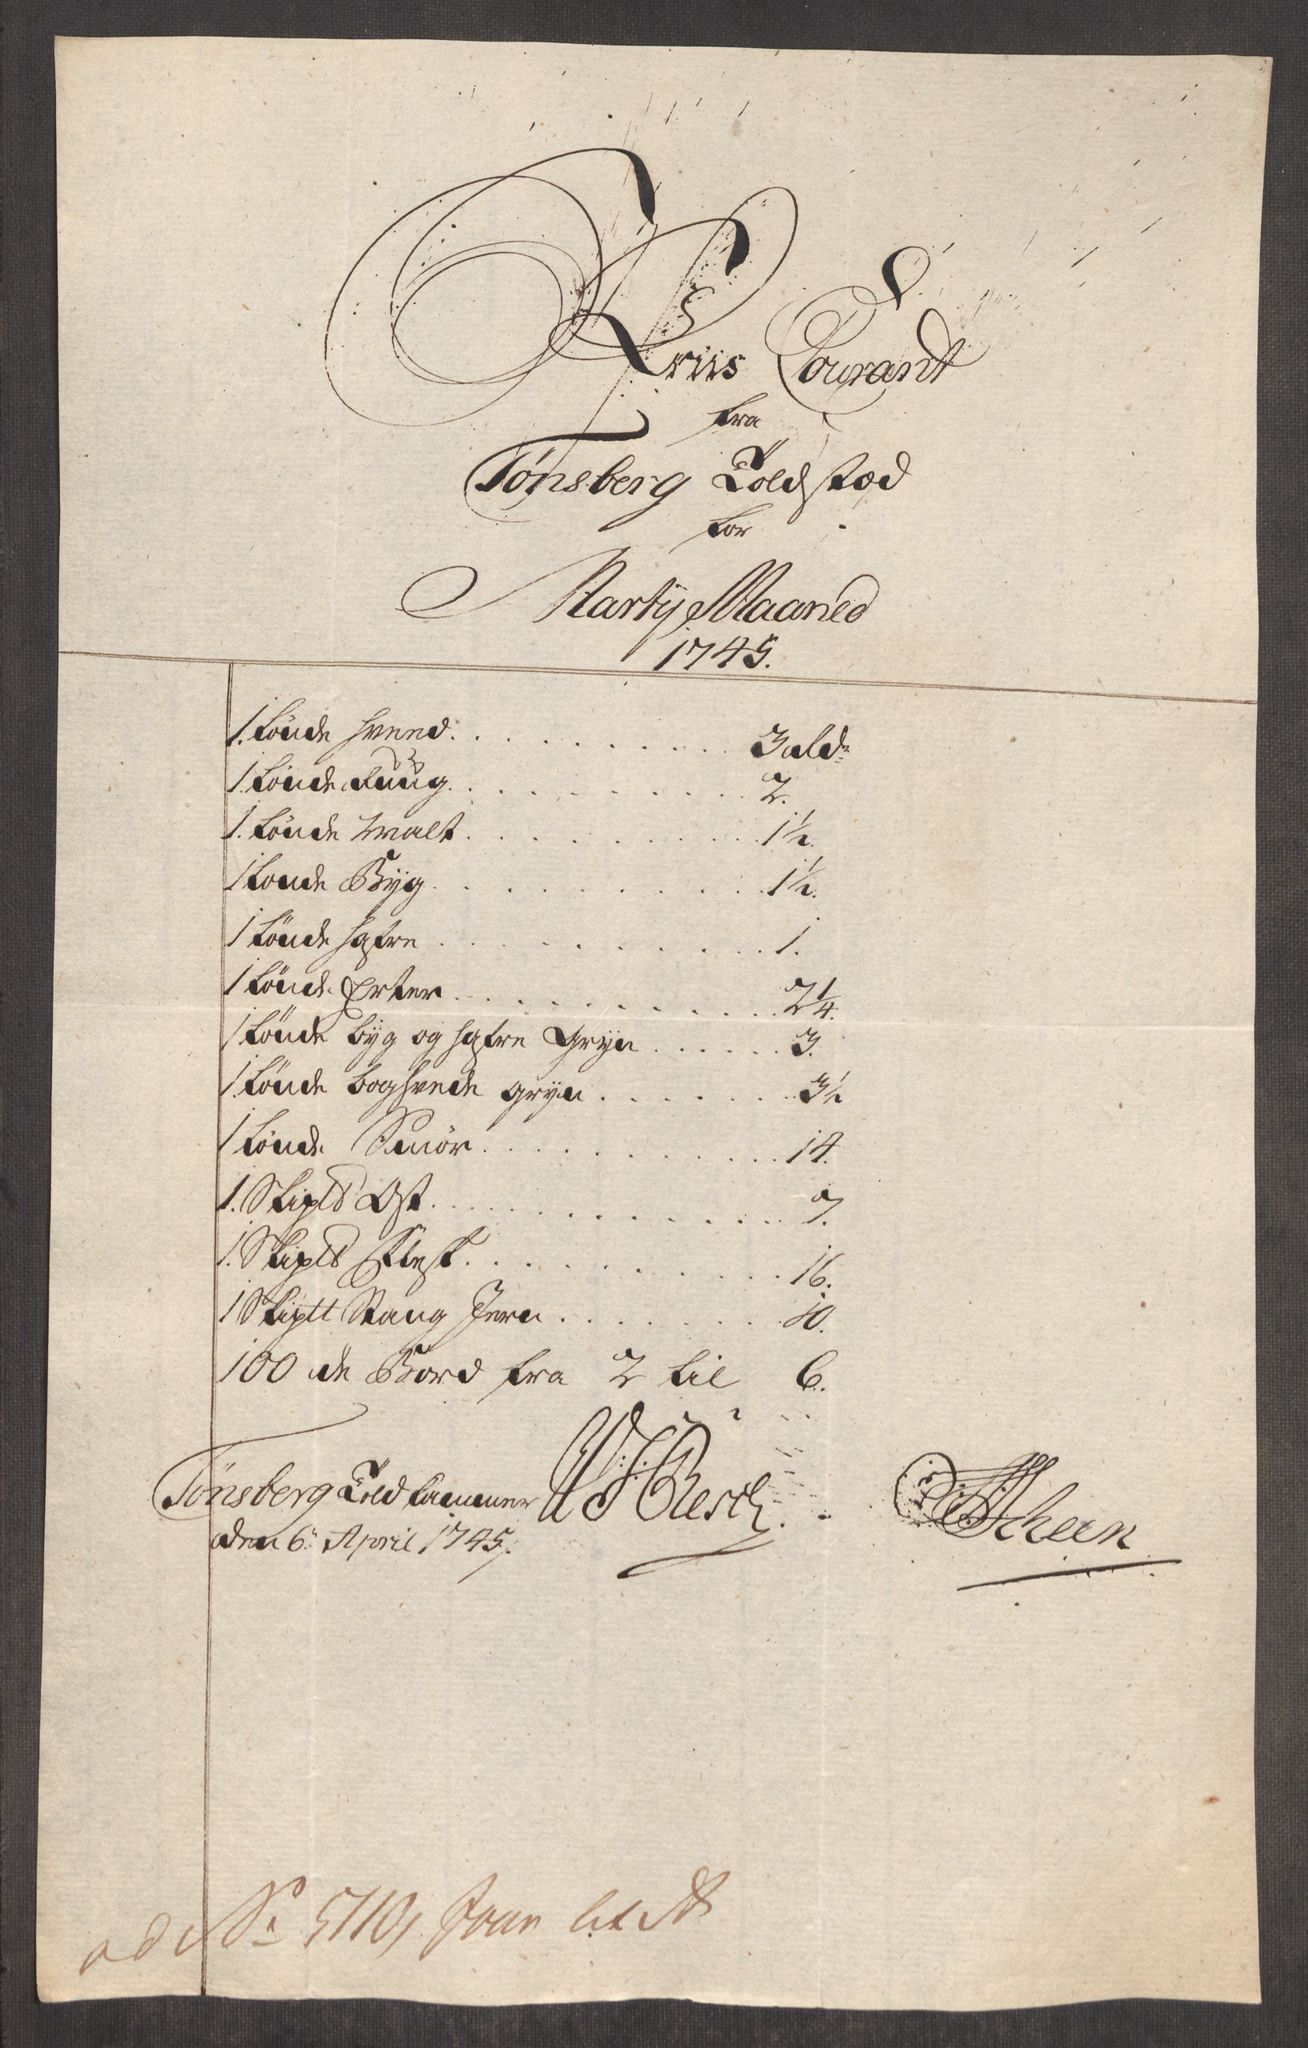 Priis Courant
fra
Tønsberg Toldsted
for
Martij Maaned
1745.
1. tønde hveed. . . . . . . . . . 3 rld.
1. tønde Ruug. . . . . . . . . . 2.
1. tønde Malt. . . . . . . . . . 1½.
1 tonde Byg. . . . . . . . . . 1½.
1 tönde hafre . . . . . . . . . . 1.
1 tönde Erter. . . . . . . . . . 2¼.
1 tönde byg og hafre Gryn . . . . . . 3.
1. tönde boghvede gryn . . . . . . . 3½
1 tönde Smör. . . . . . . . . . 14.
1. Skipld Ost. . . . . . . . . . 7.
1. Skipld Flesk. . . . . . . . . . 16.
1 Skipll Stang Jern . . . . . . . . 10.
100 de Bord fra 2 til 6.
Tønsberg Toldkammer
den 6. April 1745.